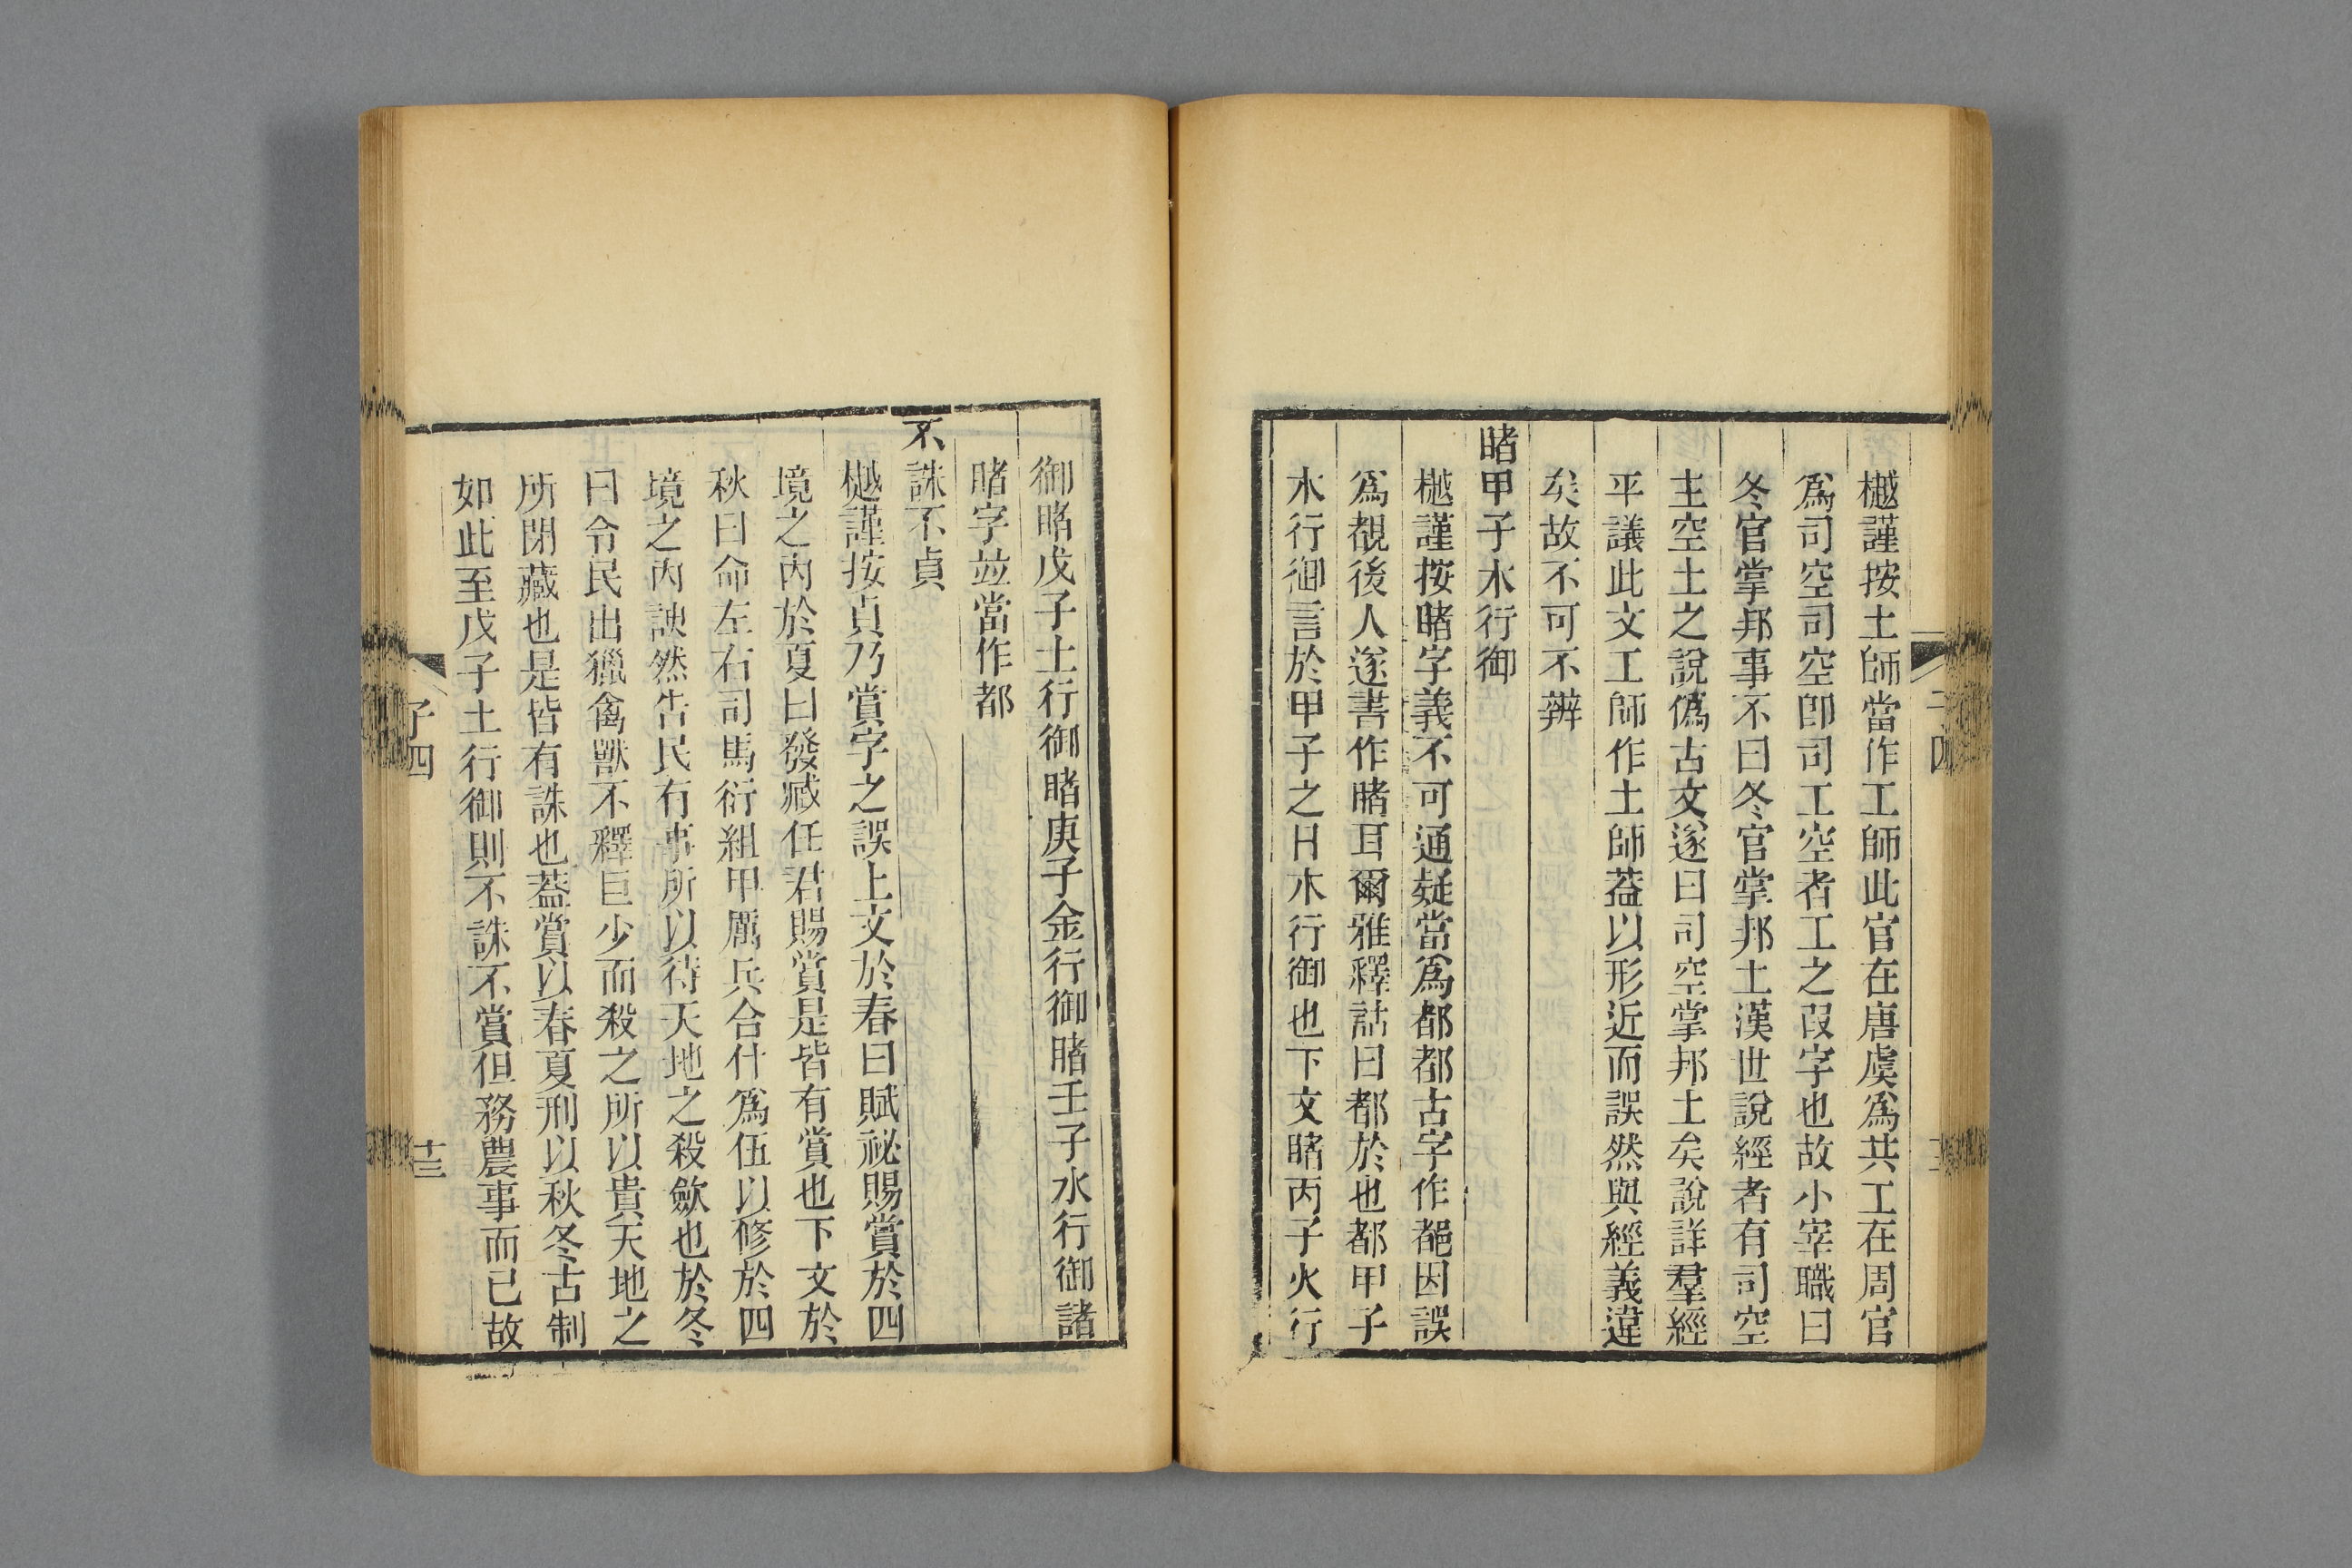 樾謹按土師當作工師此官在唐虞爲共工在周官
爲司空司空卽司工空者工之叚字也故小宰職曰
冬官掌邦事不曰冬官掌邦土漢世說經者有司空
主空土之說僞古文遂曰司空掌邦土矣說詳羣經
平議此文工師作土師葢以形近而誤然與經義違
矣故不可不辨
睹甲子木行御
樾謹按睹字義不可通疑當爲都都古字作𨜞因誤
爲覩後人遂書作睹耳爾雅釋詁曰都於也都甲子
木行御言於甲子之日木行御也下文睹丙子火行
御睹戊子土行御睹庚子金行御睹壬子水行御諸
睹字竝當作都
不誅不貞
樾謹按貞乃賞字之誤上文於春曰賦祕賜賞於四
境之內於夏曰發臧任君賜賞是皆有賞也下文於
秋曰命左右司馬衍組甲厲兵合什爲伍以修於四
境之內諛然告民有事所以待天地之殺歛也於冬
曰令民出獵禽獸不釋巨少而殺之所以貴天地之
所閉藏也是皆有誅也葢賞以春夏刑以秋冬古制
如此至戊子土行御則不誅不賞但務農事而已故
子四
十三